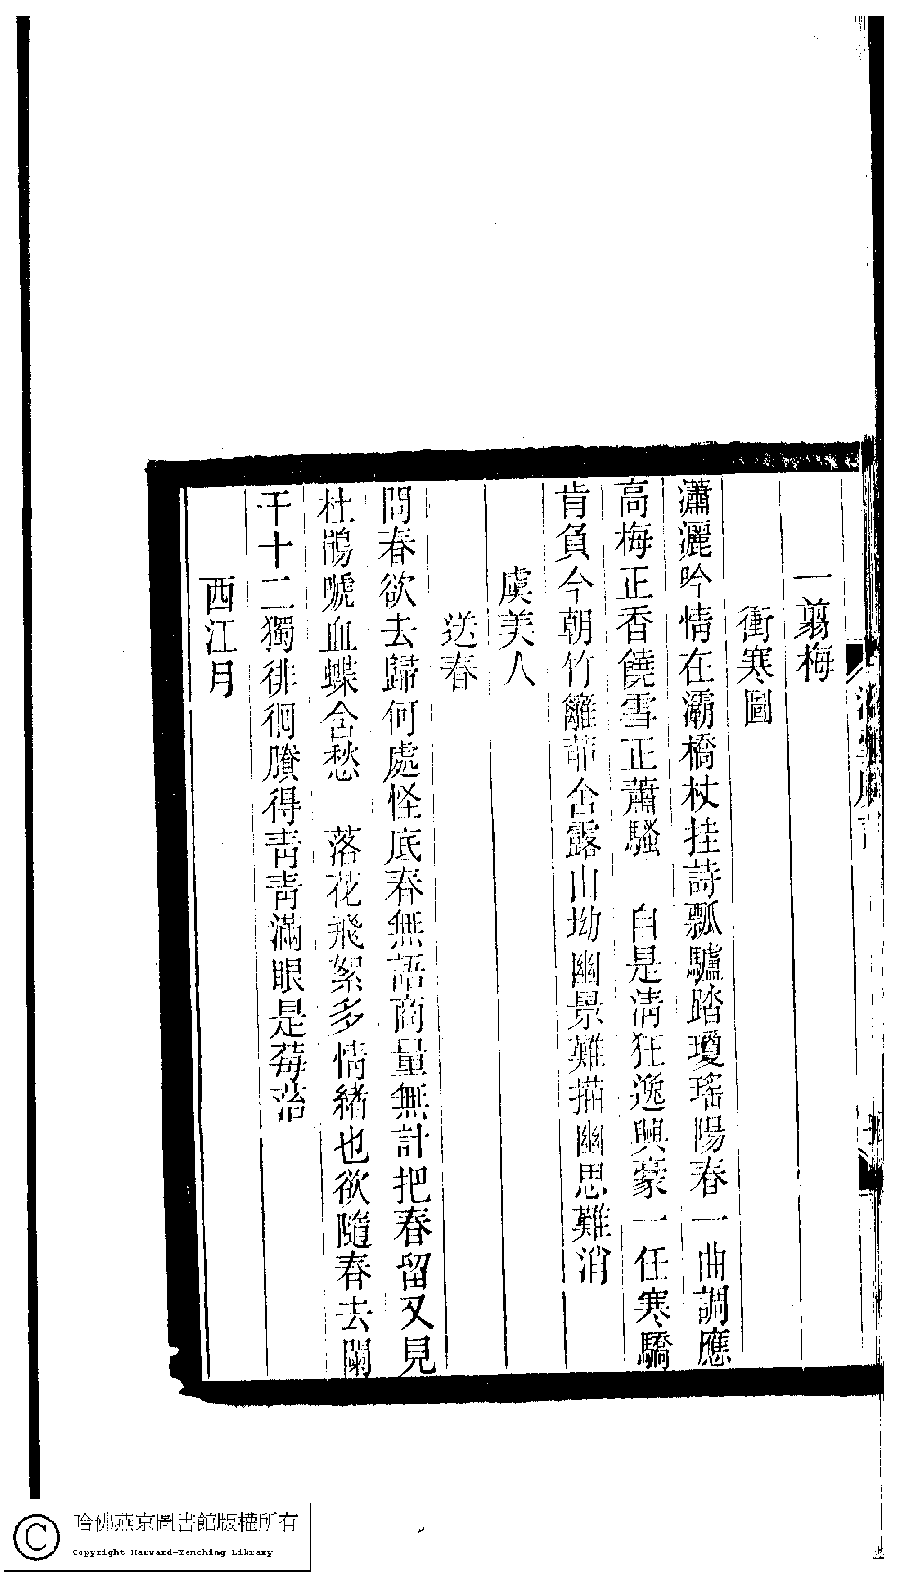 一翦梅
衝寒圖
瀟灑吟情在灞橋杖挂詩瓢驢踏瓊瑤陽春一曲調應
高梅正香饒雪正蕭騷　自是清狂逸興豪一任寒驕
肯負今朝竹籬茆舍露山坳幽景難描幽思難消
虞美人
送春
問春欲去歸何處怪底春無語商量無計把春留又見
杜鵑嗁血蝶含愁　落花飛絮多情緒也欲隨春去闌
干十二獨徘徊賸得靑靑滿眼是莓苔
西江月
哈佛燕京圖書館版權所有
Copyright Harvard-Yenching Library